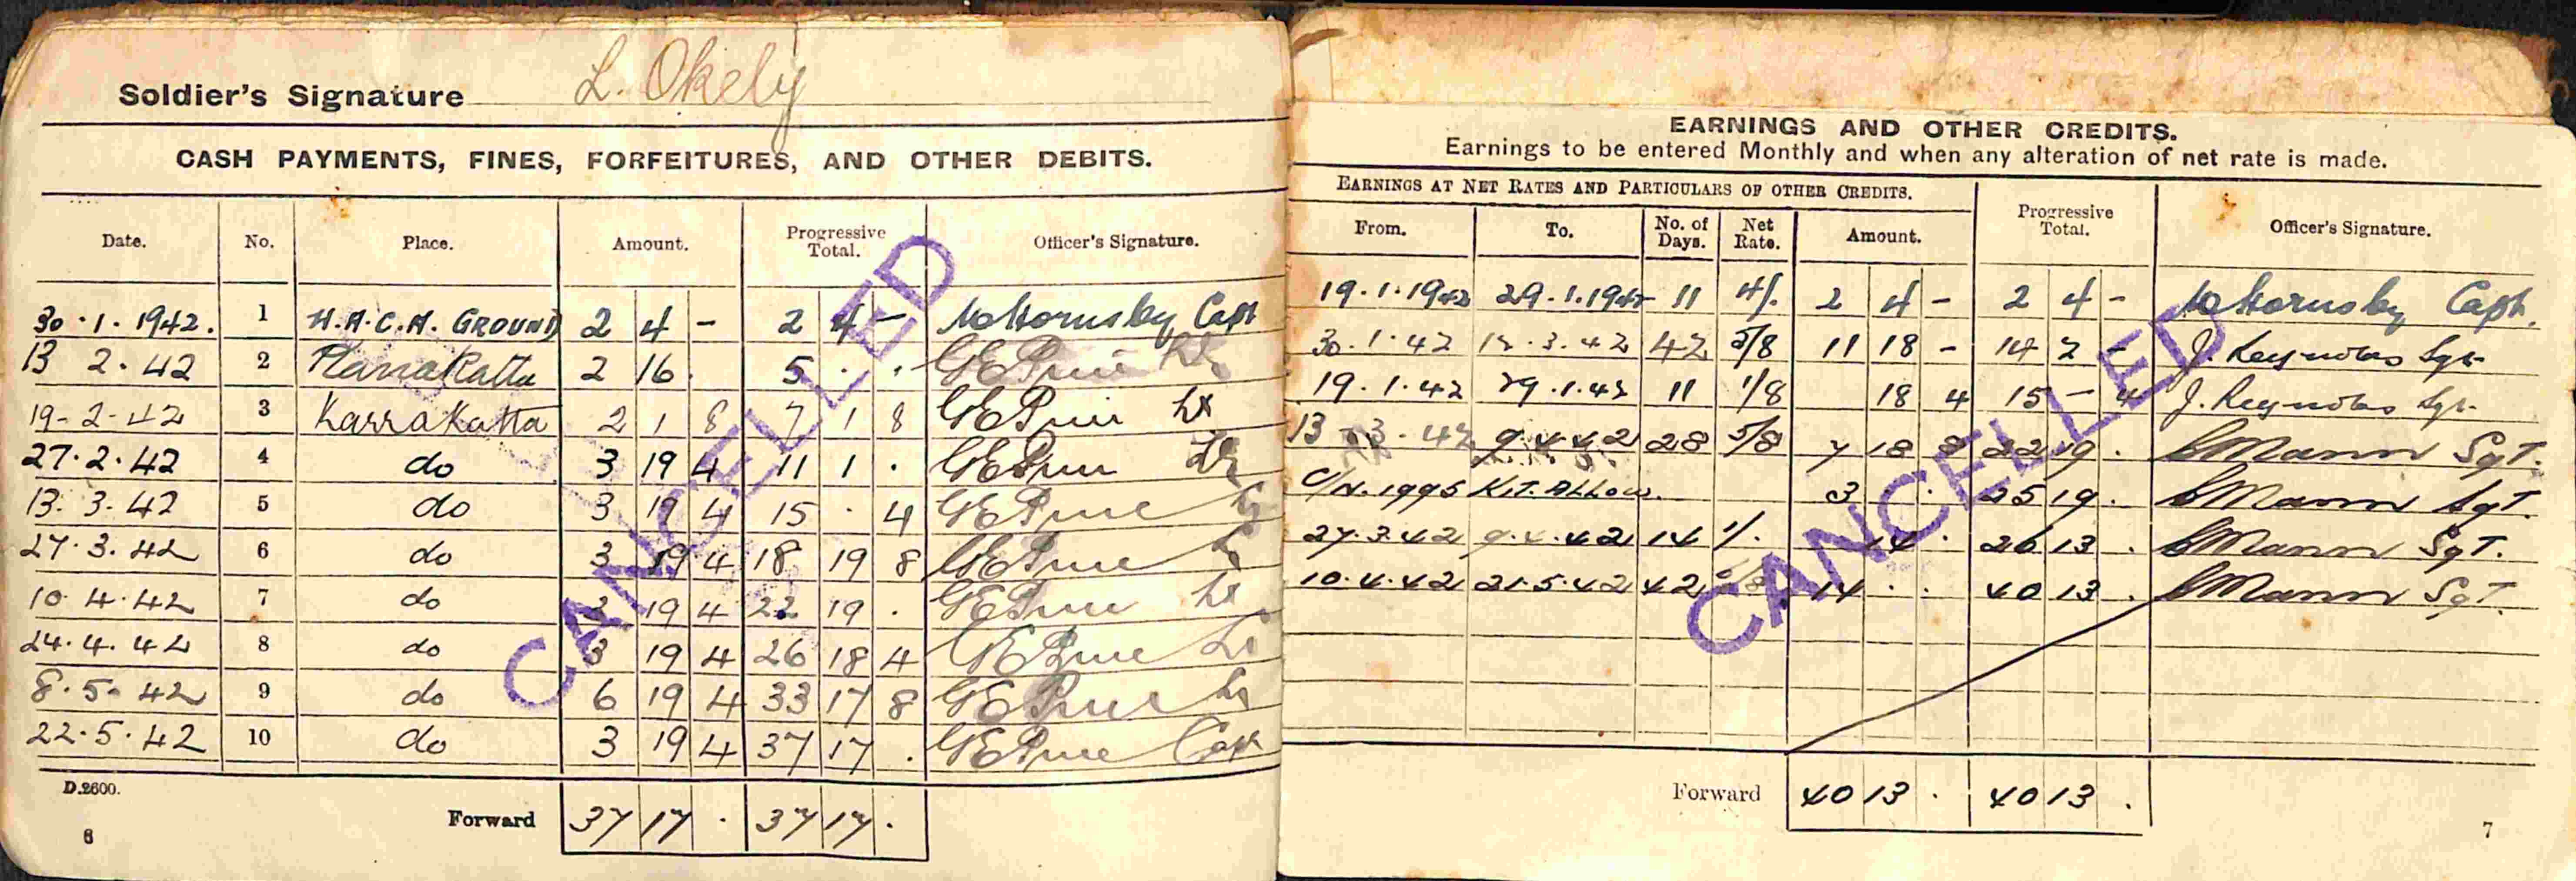 Soldier's Signature L. Okely
CASH PAYMENTS, FINES, FORFEITURES, AND OTHER DEBITS.
Date. No. Place. Amount. Progressive Total. Officer's Signature.
30.1.1942. 1 W.A.C.A. GROUND 2 4 - 2 4 - Hornsby Capt
13 2.42 2 Karrakatta 2 16 . 5 . .
19-2-42 3 Karrakatta 2 1 8 7 1 8 Lt
27.2.42 4 do 3 19 4 11 1 . Lt
13.3.42 5 do 3 19 4 15 . 4
27.3.42 6 do 3 19 4 18 19 8
10.4.42 7 do 3 19 4 22 19 . Lt
24.4.42 8 do 3 19 4 26 18 4 Lt
8.5.42 9 do 6 19 4 33 17 8 Lt
22.5.42 10 do 3 19 4 37 17 . Capt
D.2600.
Forward 37 17 . 37 17 .
6
CANCELLED
EARNINGS AND OTHER CREDITS.
Earnings to be entered Monthly and when any alteration of net rate is made.
EARNINGS AT NET RATES AND PARTICULARS OF OTHER CREDITS.
From. To. No. of Days. Net Rate. Amount. Progressive Total. Officer's Signature.
19.1.1942 29.1.1942 11 4/. 2 4 - 2 4 - Hornsby Capt.
30.1.42 12.3.42 42 5/8 11 18 - 14 2 - J. Reynolds Sgt.
19.1.42 29.1.42 11 1/8 18 4 15 - 4 J. Reynolds Sgt.
13 3.42 9.4.42 28 5/8 7 18 8 22 19 . Mann Sgt.
C/N.1995 KIT.ALLOW. 3 . . 25 19 . Mann Sgt.
27.3.42 9.4.42 14 1/. 14 . 26 13 . Mann Sgt.
10.4.42 21.5.42 42 14 . . 40 13 . Mann Sgt.
Forward 40 13 . 40 13 .
7
CANCELLED